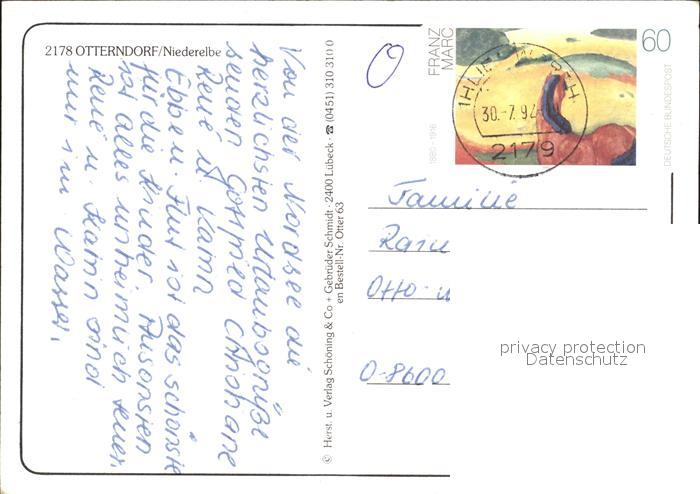 2178 OTTERNDORF/Niederelbe
Von der Nordsee die
herzlichsten Urlaubsgrüße
senden Gottfried Christiane
René u. Karin
Ebbe u. Flut ist das schönste
für die Kinder. Ansonsten
ist alles unheimlich teuer.
René u. Karin sind
nur im Wasser.
© Herst. u. Verlag Schöning & Co + Gebrüder Schmidt · 2400 Lübeck · ☎ (0451) 310 310 0
en Bestell-Nr. Otter 63
FRANZ
MARC
1880-1916
60
DEUTSCHE BUNDESPOST
30.-7.92
2179
Familie
Rain
Otto-
O-8600
privacy protection
Datenschutz